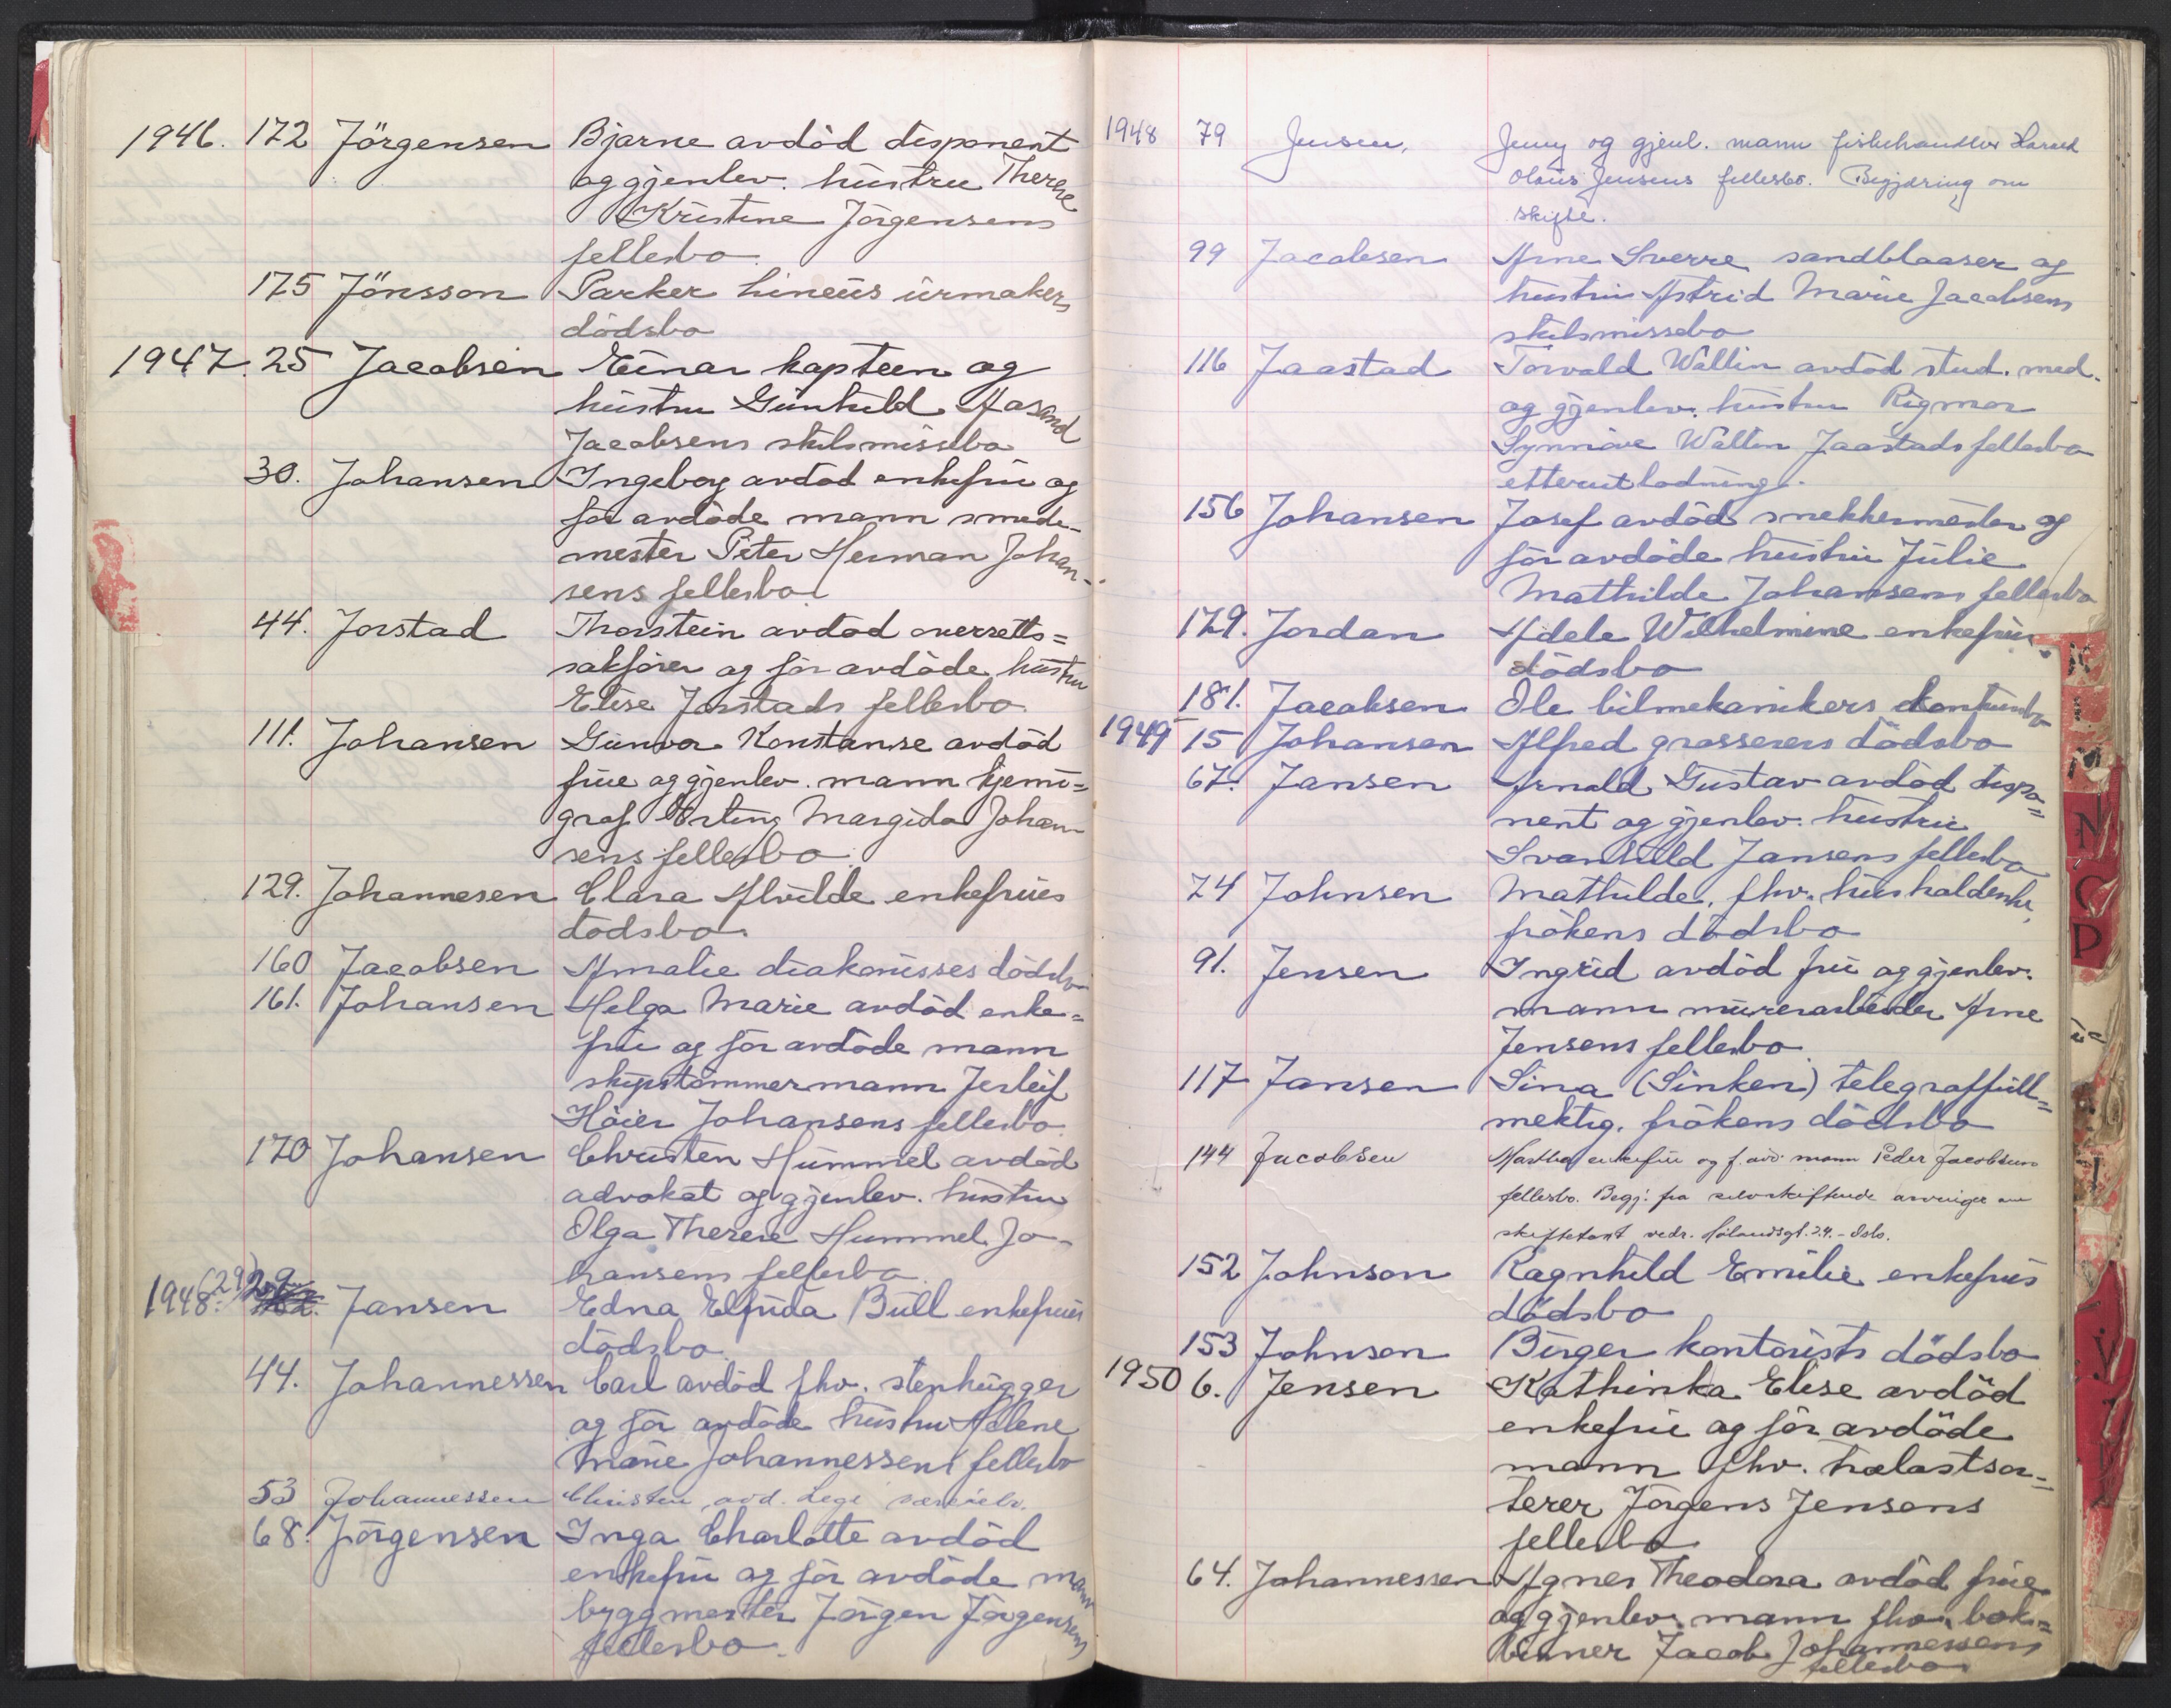 1946. 172 Jörgensen Bjarne avdöd disponent
og gjenlev. hustru Therese
Kristine Jörgensens
fellesbo.
175 Jönsson Parker Lineus urmakers
dödsbo
1947. 25 Jacobsen Einar kaptein og
hustru Gunhild Aasand
Jacobsens skilsmissebo
30. Johansen Ingeborg avdöd enkefru og
för avdöde mann smede-
mester Peter Herman Johan-
sens fellesbo
44. Jorstad Thorstein avdöd overretts=
sakförer og för avdöde hustru
Elise Jorstads fellesbo
111. Johansen Gunvor Konstanse avdöd
frue og gjenlev. mann kjemi=
graf Erling Margido Johan-
sens fellesbo
129. Johannesen Clara Alvilde enkefrues
dödsbo.
160 Jacobsen Amalie diakonisses dödsbo
161. Johansen Helga Marie avdöd enke=
fru og för avdöde mann
skipstömmermann Jerleif
Höier Johansens fellesbo.
170 Johansen Christen Hummel avdöd
advokat og gjenlev. hustru
Olga Therese Hummel Jo-
hansens fellesbo.
1948. (29) 29 Jansen Edna Elfrida Bull enkefrues
dödsbo.
44. Johannessen Carl avdöd fhv. stenhugger
og för avdöde hustru Helene
Marie Johannessens fellesbo
53 Johannessen Christen, avd. lege særeiebo.
68. Jörgensen Inga Charlotte avdöd
enkefru og för avdöde mann
byggmester Jörgen Jörgensens
fellesbo.
1948 79 Jensen, Jenny og gjenl. mann fiskehandler Harald
Olaus Jensens fellesbo. Begjæring om
skifte.
99 Jacobsen Arne Sverre sandblaaser og
hustru Astrid Marie Jacobsens
skilsmissebo
116 Jaastad Torvald Wallin avdöd stud. med.
og gjenlev. hustru Rigmor
Synnöve Wallin Jaastads fellesbo
etterutlodning.
156 Johansen Josef avdöd snekkermester og
för avdöde hustru Julie
Mathilde Johansens fellesbo
179. Jordan Adele Wilhelmine enkefrues
dödsbo
181. Jacobsen Ole bilmekanikers konkursbo
1949 15 Johansen Alfred grosserers dödsbo
67. Jansen Arnold Gustav avdöd dispo=
nent og gjenlev. hustru
Svanhild Jansens fellesbo
74 Johnsen Mathilde, fhv. husholderske,
frökens dödsbo
91. Jensen Ingrid avdöd fru og gjenlev.
mann murerarbeider Arne
Jensens fellesbo.
117 Jansen Sina (Sinken) telegraffull=
mektig, frökens dödsbo
144 Jacobsen Martha enkefru og f. avd. mann Peder Jacobsens
fellesbo. Begj. fra selvskiftende arvinger om
skiftetakst vedr. Hölandsgt. 24. - Oslo.
152 Johnson Ragnhild Emilie enkefrues
dödsbo
153 Johnson Birger kontorists dödsbo
1950 6. Jensen Kathinka Elise avdöd
enkefru og för avdöde
mann fhv. trelastsor=
terer Jörgens Jensens
fellesbo
64. Johannessen Agnes Theodora avdöd frue
og gjenlev. mann fhv. bok=
binner Jacob Johannessens
fellesbo
N
C
P